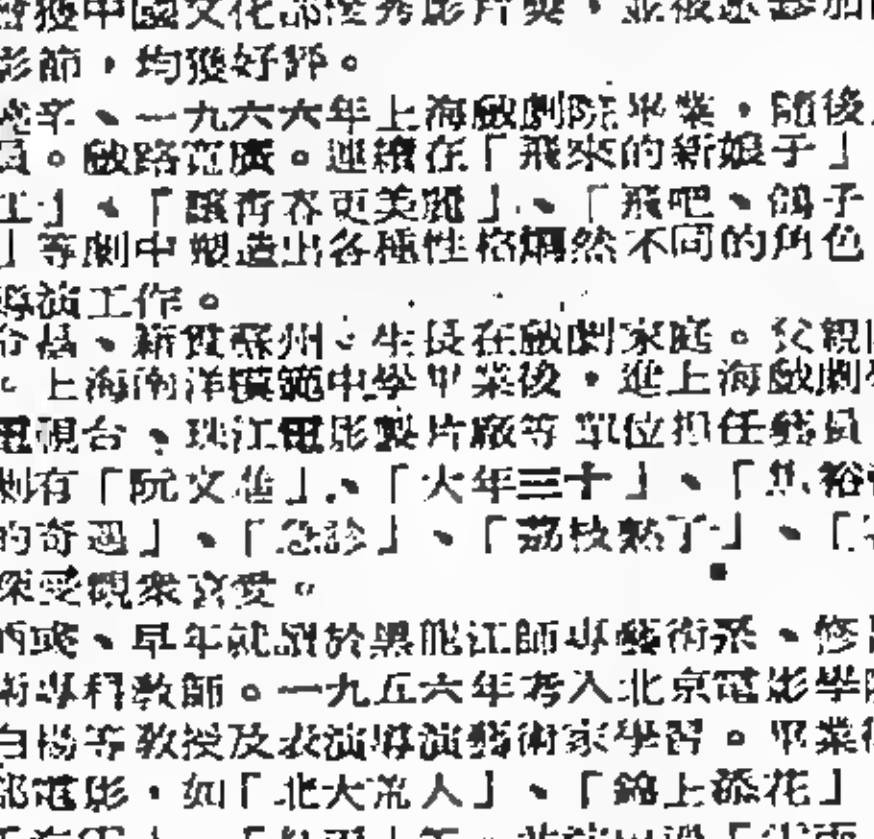 曾獲中國文化部優秀影片獎，並被邀參加
影節，均獲好評。
、一九六六年上海戲劇院畢業，隨後
員。戲路寬廣。連續在「飛來的新娘子」
工」、「讓青春更美麗」、「飛吧、鴿子
」等劇中塑造出各種性格炯然不同的角色
導演工作。
、籍貫蘇州、生長在戲劇家庭。父親
。上海南洋模範中學畢業後，進上海戲劇學
電視台、珠江電影製片廠等單位担任演員
劇有「阮文進」、「大年三十」、「焦裕
的奇遇」、「急診」、「荔枝熟了」、「
深受觀衆喜愛。
、早年就讀於黑龍江師專藝術系、修
術專科教師。一九五六年考入北京電影學院
白楊等教授及表演導演藝術家學習。畢業後
部電影，如「北大荒人」、「錦上添花」